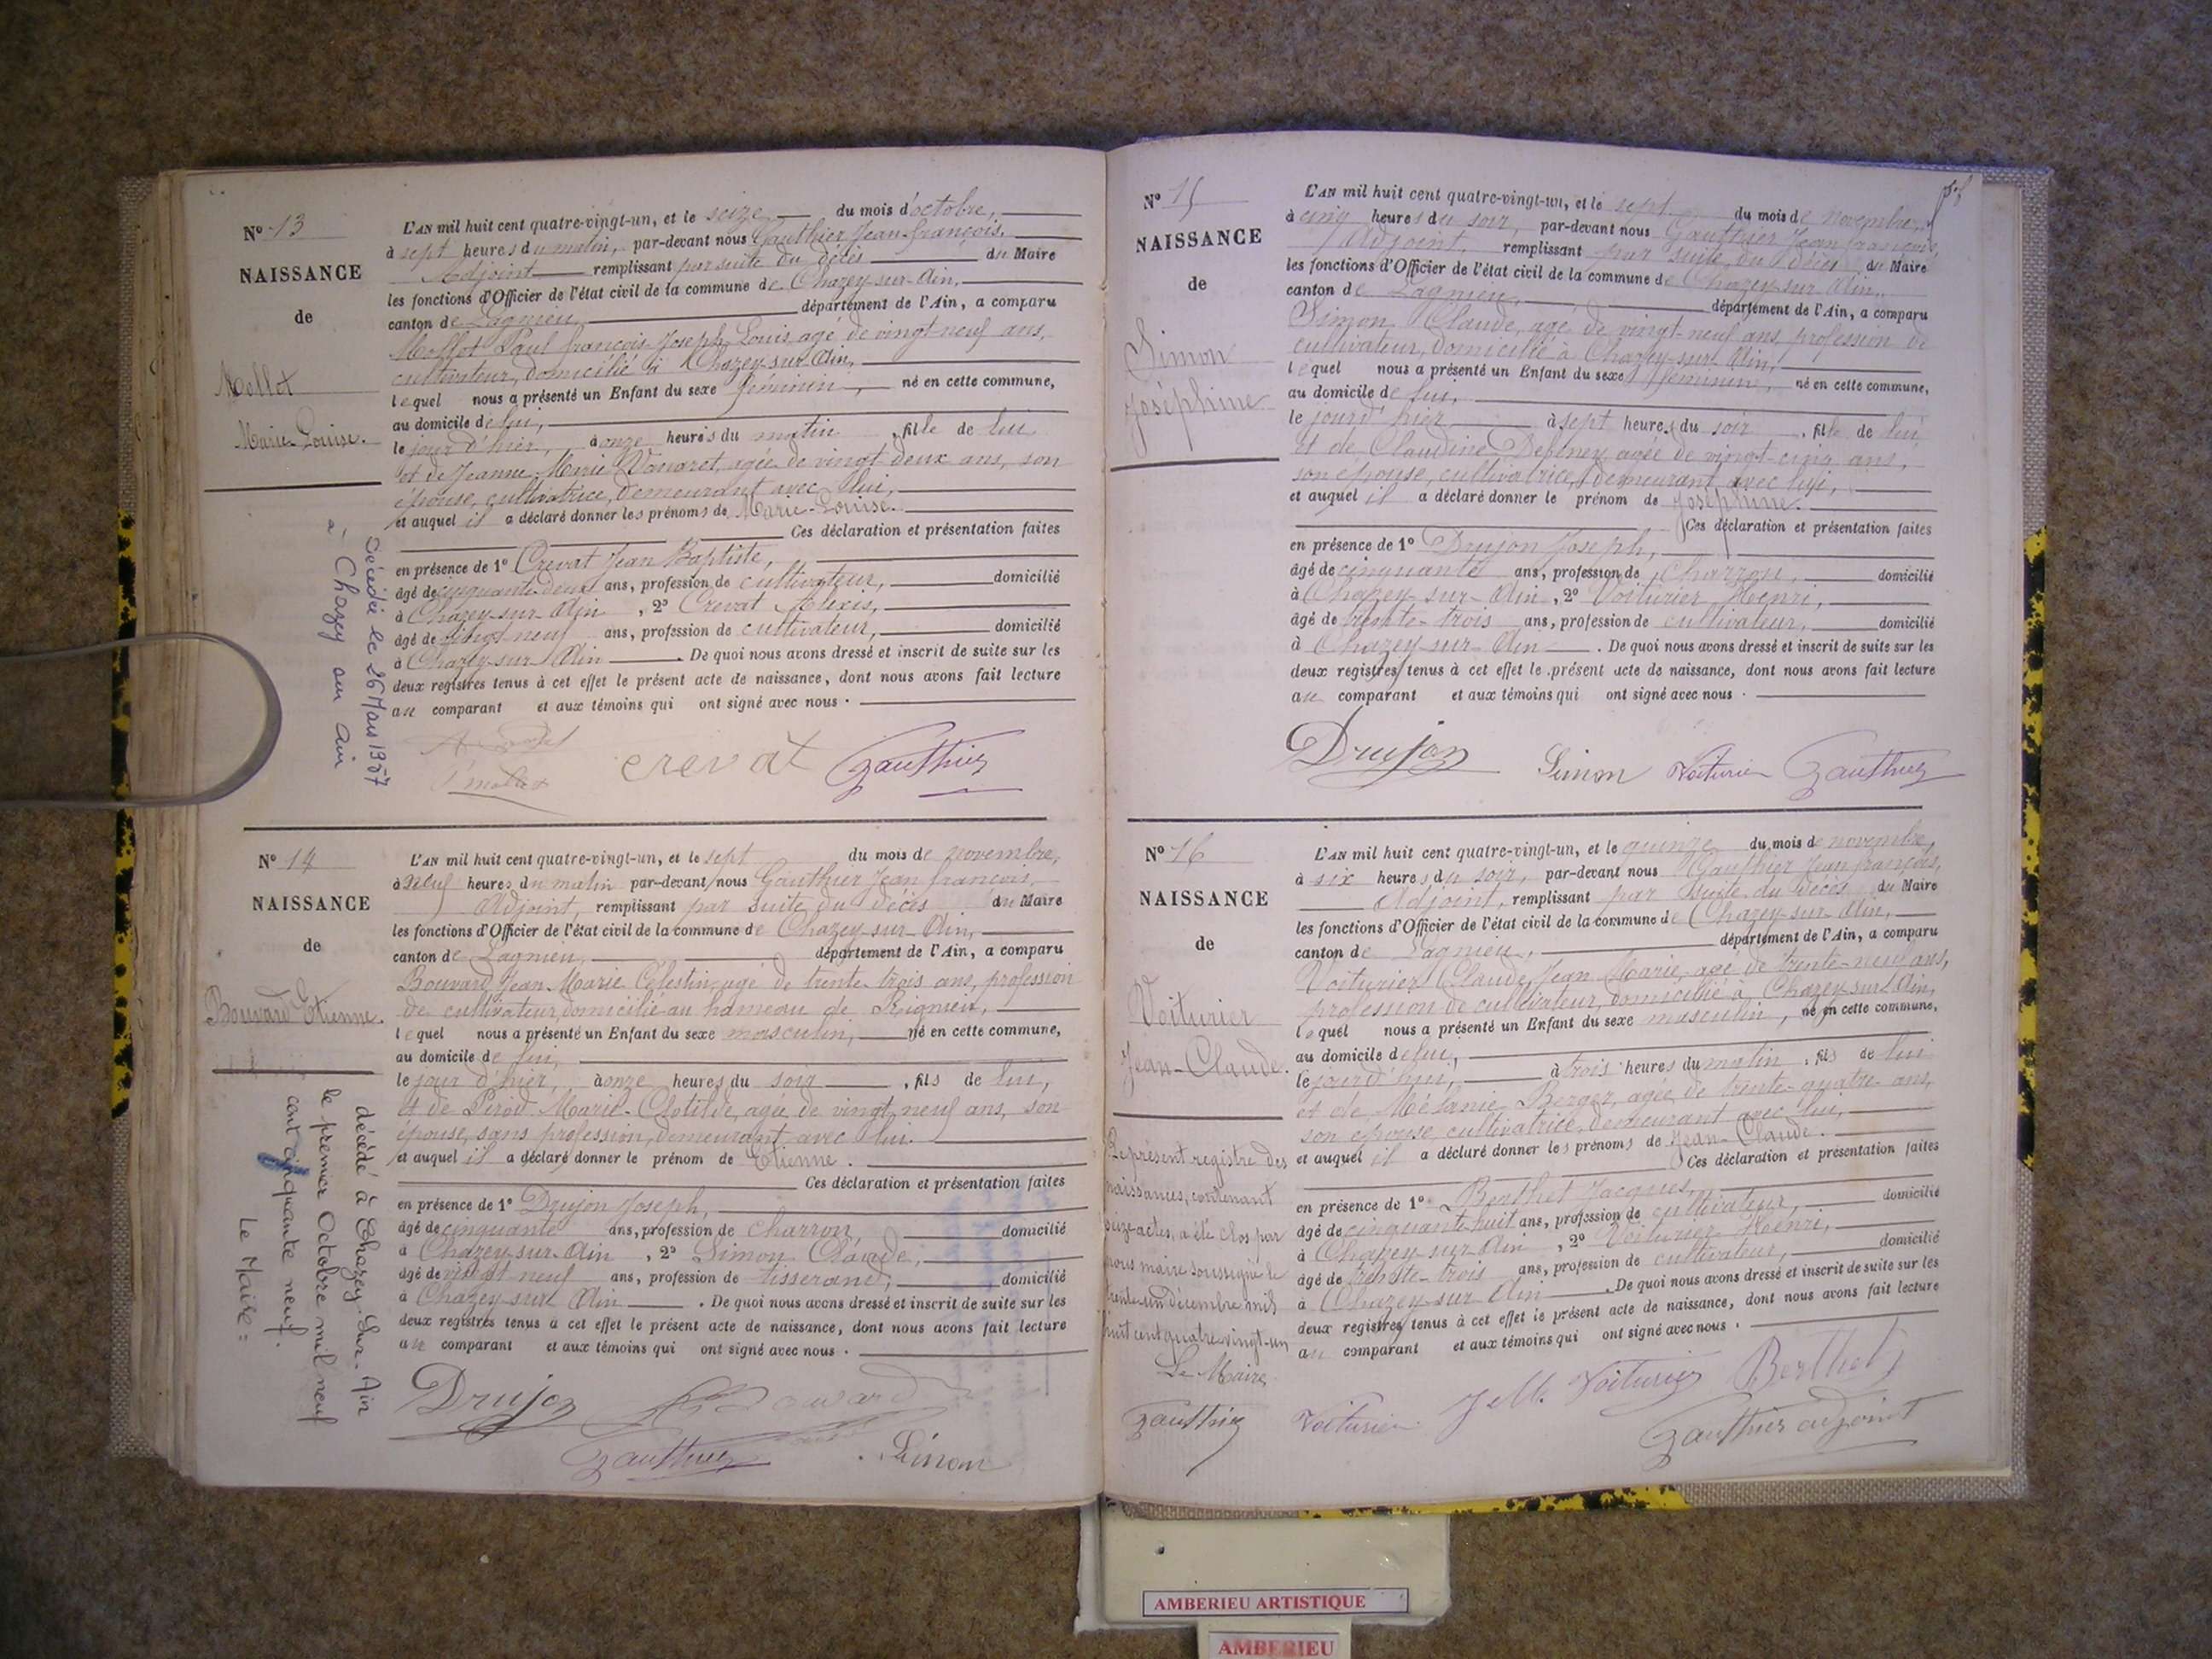 N° 13
NAISSANCE
de
Mollot
Marie-Louise.
L'AN mil huit cent quatre-vingt-un, et le seize du mois d'octobre,
à sept heures du matin, par-devant nous Gauthier Jean-françois,
Adjoint remplissant par suite du décès du Maire
les fonctions d'Officier de l'état civil de la commune de Chazey-sur-Ain,
canton de Lagnieu, département de l'Ain, a comparu
Mollot Paul françois Joseph Louis, agé de vingt-neuf ans,
cultivateur, domicilié à Chazey-sur-Ain,
lequel nous a présenté un Enfant du sexe féminin, né en cette commune,
au domicile de lui,
le jour d'hier, à onze heures du matin, fille de lui
et de Jeanne Marie agée de vingt deux ans, son
épouse, cultivatrice, demeurant avec lui,
et auquel il a déclaré donner les prénoms de Marie-Louise.
Ces déclaration et présentation faites
en présence de 1° Crevat Jean Baptiste,
âgé de cinquante-deux ans, profession de cultivateur, domicilié
à Chazey-sur-Ain, 2° Crevat Alexis,
âgé de vingt neuf ans, profession de cultivateur, domicilié
à Chazey-sur-Ain. De quoi nous avons dressé et inscrit de suite sur les
deux registres tenus à cet effet le présent acte de naissance, dont nous avons fait lecture
au comparant et aux témoins qui ont signé avec nous.
crevat Gauthier
Décédée le 26 Mars 1957
à Chazey sur Ain
N° 14
NAISSANCE
de
Bouvard Etienne.
L'AN mil huit cent quatre-vingt-un, et le sept du mois de novembre,
à neuf heures du matin par-devant nous Gauthier Jean françois,
Adjoint, remplissant par suite du décès du Maire
les fonctions d'Officier de l'état civil de la commune de Chazey-sur-Ain,
canton de Lagnieu, département de l'Ain, a comparu
Bouvard Jean-Marie Célestin, agé de trente-trois ans, profession
de cultivateur, domicilié au hameau de Rignieu,
lequel nous a présenté un Enfant du sexe masculin, né en cette commune,
au domicile de lui,
le jour d'hier, à onze heures du soir, fils de lui,
et de Pirod Marie-Clotilde, agée de vingt neuf ans, son
épouse, sans profession, demeurant avec lui.
et auquel il a déclaré donner le prénom de Etienne.
Ces déclaration et présentation faites
en présence de 1° Drujon Joseph,
âgé de cinquante ans, profession de charron, domicilié
à Chazey-sur-Ain, 2° Simon Claude,
âgé de vingt neuf ans, profession de tisserand, domicilié
à Chazey-sur Ain. De quoi nous avons dressé et inscrit de suite sur les
deux registres tenus à cet effet le présent acte de naissance, dont nous avons fait lecture
au comparant et aux témoins qui ont signé avec nous.
Drujon Bouvard
Gauthier Simon
décédé à Chazey-Sur-Ain
le premier Octobre mil neuf
cent cinquante neuf.
Le Maire =
N° 15
NAISSANCE
de
Simon
Joséphine
L'AN mil huit cent quatre-vingt-un, et le sept du mois de novembre,
à cinq heures du soir, par-devant nous Gauthier Jean françois,
Adjoint remplissant par suite du décès du Maire
les fonctions d'Officier de l'état civil de la commune de Chazey-sur-Ain,
canton de Lagnieu, département de l'Ain, a comparu
Simon Claude, agé de vingt-neuf ans, profession de
cultivateur, domicilié à Chazey-sur-Ain,
lequel nous a présenté un Enfant du sexe féminin, né en cette commune,
au domicile de lui,
le jour d'hier à sept heures du soir, fille de lui
et de Claudine agée de vingt-cinq ans,
son épouse, cultivatrice, demeurant avec lui,
et auquel il a déclaré donner le prénom de Joséphine.
Ces déclaration et présentation faites
en présence de 1° Drujon Joseph,
âgé de cinquante ans, profession de charron, domicilié
à Chazey-sur-Ain, 2° Voiturier Henri,
âgé de trente-trois ans, profession de cultivateur, domicilié
à Chazey-sur-Ain. De quoi nous avons dressé et inscrit de suite sur les
deux registres tenus à cet effet le présent acte de naissance, dont nous avons fait lecture
au comparant et aux témoins qui ont signé avec nous.
Drujon Simon Voiturier Gauthier
N° 16
NAISSANCE
de
Voiturier
Jean-Claude.
L'AN mil huit cent quatre-vingt-un, et le quinze du mois de novembre,
à six heures du soir, par-devant nous Gauthier Jean françois,
Adjoint, remplissant par suite du décès du Maire
les fonctions d'Officier de l'état civil de la commune de Chazey-sur-Ain,
canton de Lagnieu, département de l'Ain, a comparu
Voiturier Claude Jean-Marie, agé de trente-neuf ans,
profession de cultivateur, domicilié à Chazey-sur-Ain,
lequel nous a présenté un Enfant du sexe masculin, né en cette commune,
au domicile de lui,
le jourd'hui, à trois heures du matin, fils de lui
et de Mélanie Berger, agée de trente-quatre ans,
son épouse, cultivatrice, demeurant avec lui,
et auquel il a déclaré donner les prénoms de Jean-Claude.
Ces déclaration et présentation faites
en présence de 1° Berthet Jacques,
âgé de cinquante huit ans, profession de cultivateur, domicilié
à Chazey-sur Ain, 2° Voiturier Henri,
âgé de trente-trois ans, profession de cultivateur, domicilié
à Chazey-sur Ain. De quoi nous avons dressé et inscrit de suite sur les
deux registres tenus à cet effet le présent acte de naissance, dont nous avons fait lecture
au comparant et aux témoins qui ont signé avec nous.
Voiturier J M Voiturier Berthet
Gauthier adjoint
Le présent registre des
naissances, contenant
seize actes, a été clos par
nous maire soussigné le
trente un décembre mil
huit cent quatre-vingt-un
Le Maire
Gauthier
AMBERIEU ARTISTIQUE
AMBERIEU